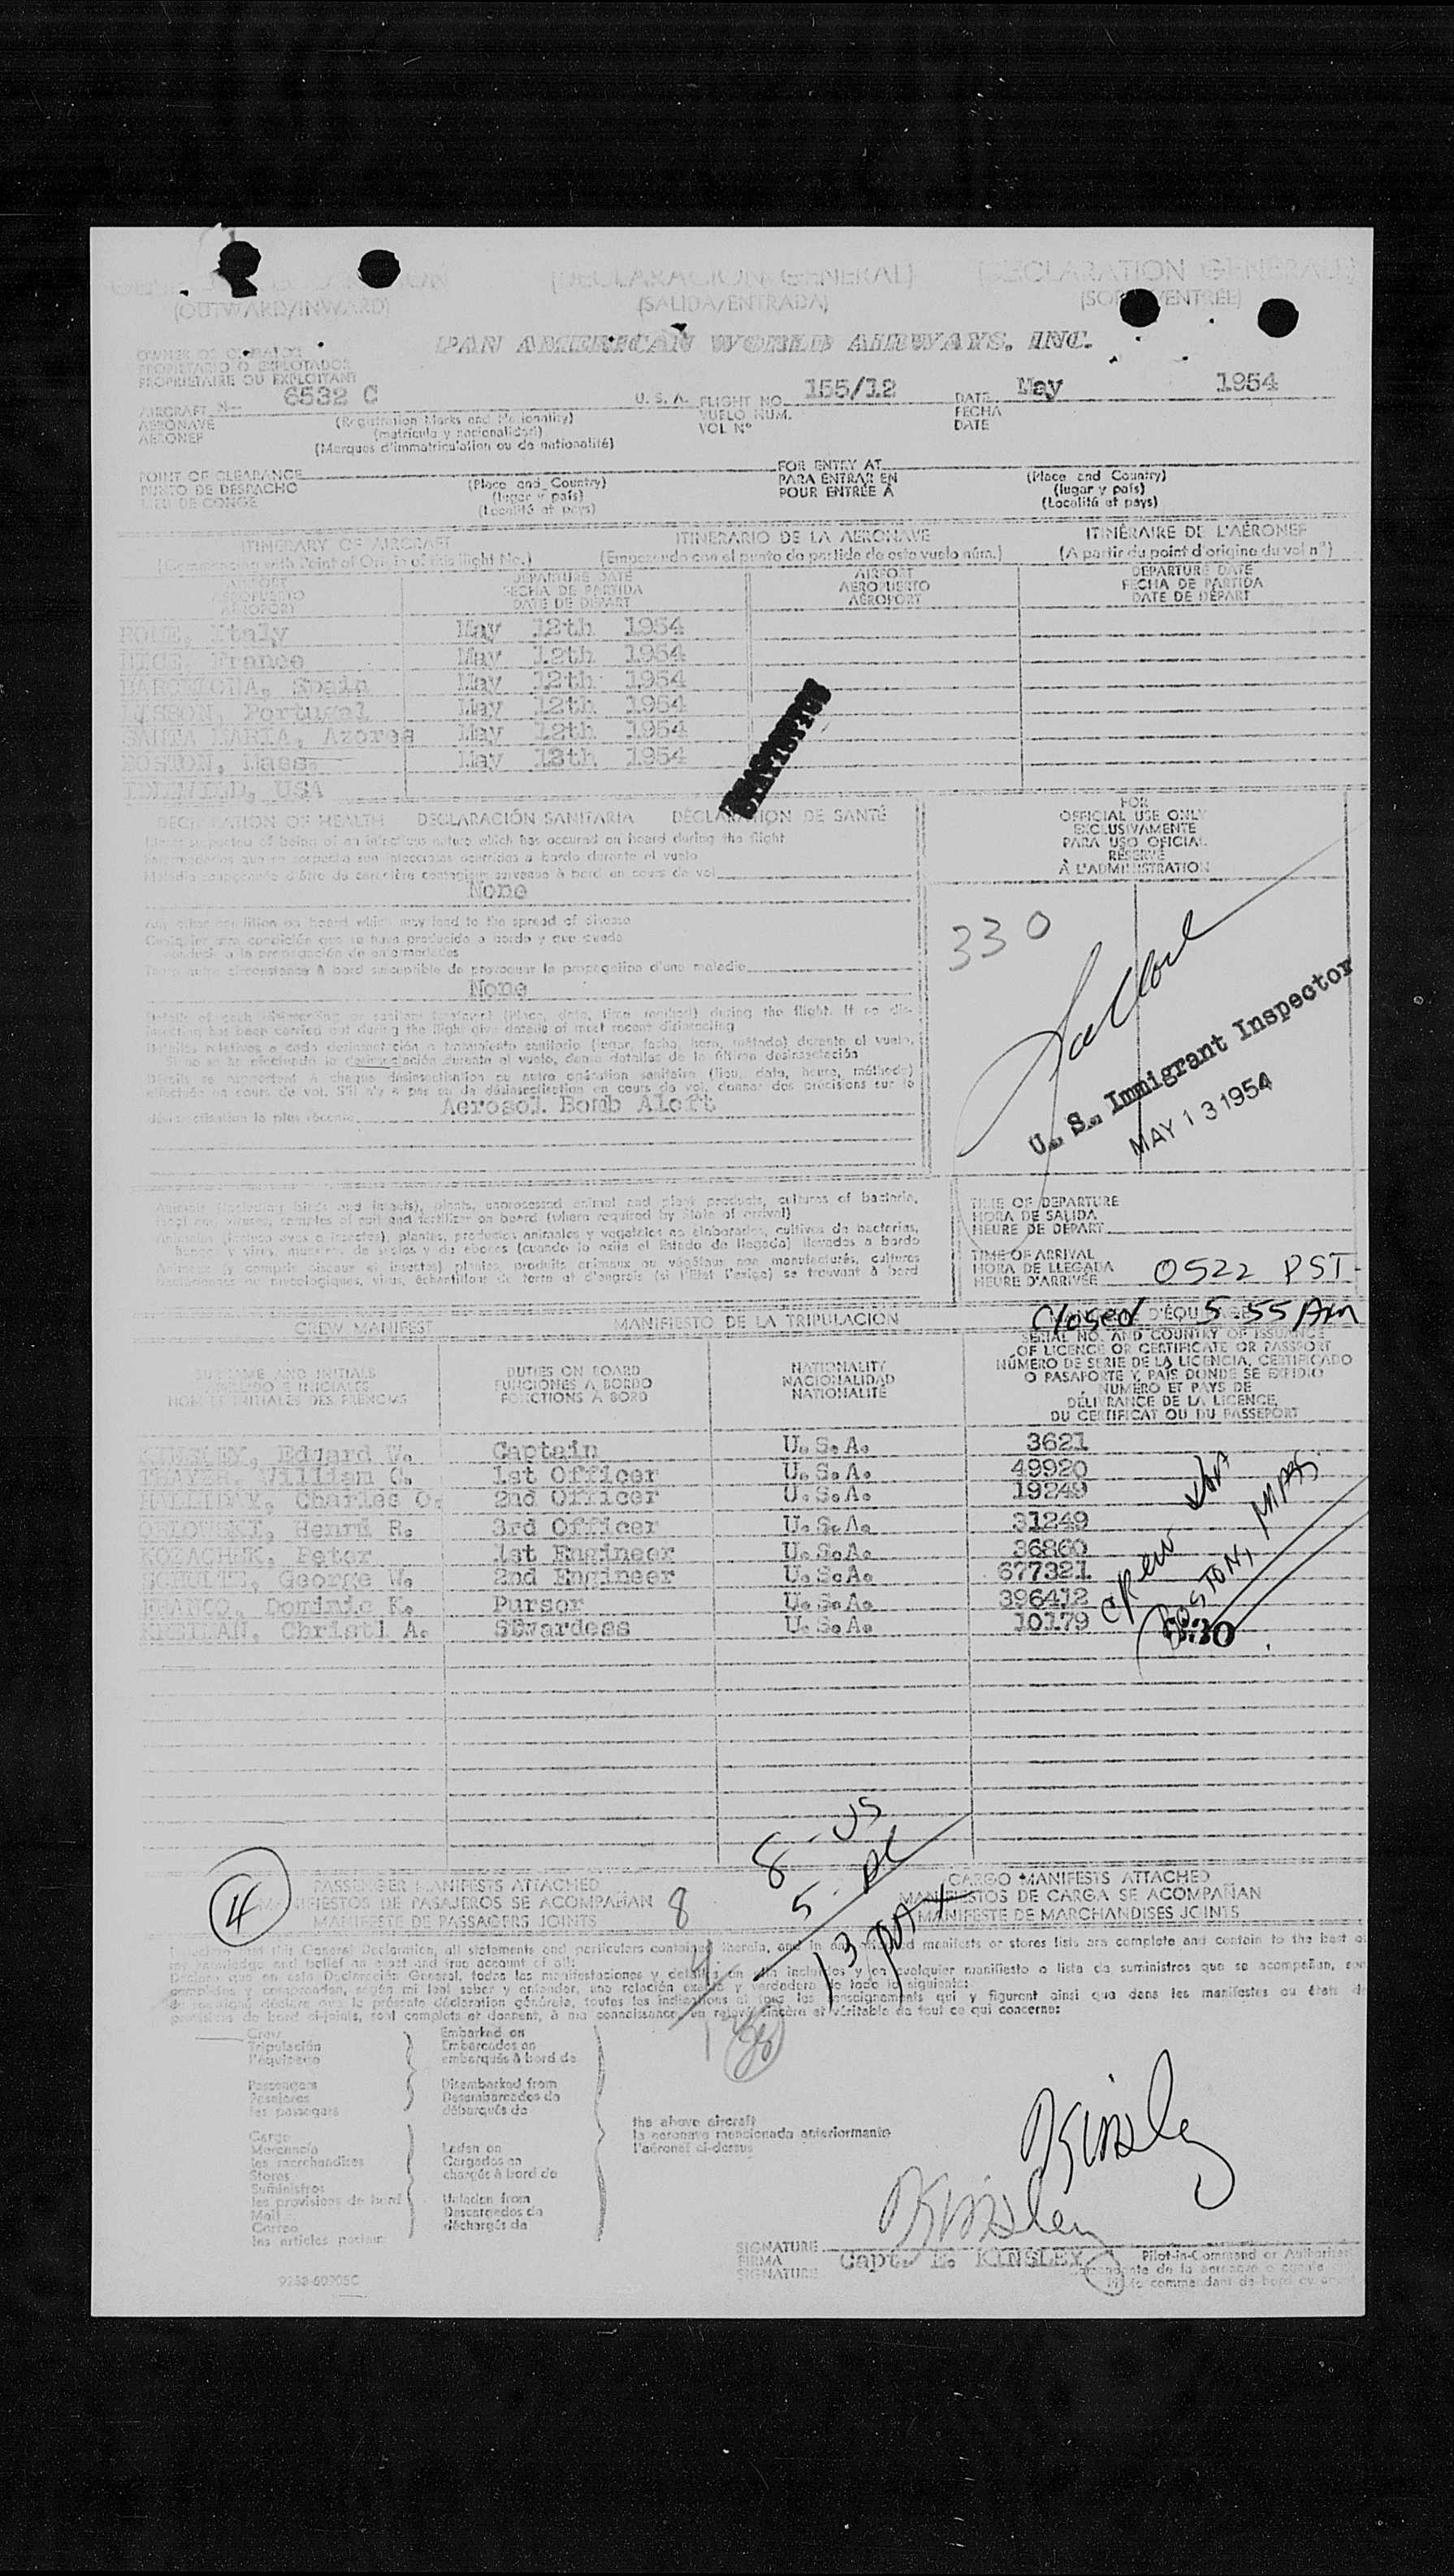 (DECLARACION GENERAL) (DECLARATION GENERALE)
(OUTWARD/INWARD) (SALIDA/ENTRADA)
PAN AMERICAN WORLD AIRWAYS, INC.
PROPIETARIO O EXPLOTADOR
PROPRIETAIRE OU EXPLOITANT
AIRCRAFT N- 6532 C U. S. A. FLIGHT NO. 155/12 DATE May 1954
AERONAVE (Registration Marks and Nationality) VUELO NUM. FECHA
AERONEF (matricula y nacionalidad) VOL Nº DATE
(Marques d'immatriculation ou de nationalité)
POINT OF CLEARANCE FOR ENTRY AT
PUNTO DE DESPACHO (Place and Country) PARA ENTRAR EN (Place and Country)
LIEU DE CONGE (lugar y país) POUR ENTRÉE À (lugar y país)
(Localité et pays) (Localité et pays)
ITINERARY OF AIRCRAFT ITINERARIO DE LA AERONAVE ITINÉRAIRE DE L'AÉRONEF
(Commencing with Point of Origin of this flight No.) (Empezando con el punto de partida de este vuelo núm.) (A partir du point d'origine du vol nº)
AIRPORT DEPARTURE DATE AIRPORT DEPARTURE DATE
AEROPUERTO FECHA DE PARTIDA AEROPUERTO FECHA DE PARTIDA
AÉROPORT DATE DE DÉPART AÉROPORT DATE DE DÉPART
ROME, Italy May 12th 1954
NICE, France May 12th 1954
BARCELONA, Spain May 12th 1954
LISBON, Portugal May 12th 1954
SANTA MARIA, Azores May 12th 1954
BOSTON, Mass. May 13th 1954
IDLEWILD, USA
DECLARATION OF HEALTH DECLARACIÓN SANITARIA DÉCLARATION DE SANTÉ
FOR
OFFICIAL USE ONLY
EXCLUSIVAMENTE
PARA USO OFICIAL
RÉSERVÉ
À L'ADMINISTRATION
Illness suspected of being of an infectious nature which has occured on board during the flight
Enfermedades que se sospecha son infecciosas ocurridas a bordo durante el vuelo
Maladie soupçonnée d'être de caractère contagieux survenue à bord en cours de vol
None
Any other condition on board which may lead to the spread of disease
Cualquier otra condición que se haya producido a bordo y que pueda
conducir a la propagación de enfermedades
Toute autre circonstance à bord susceptible de provoquer la propagation d'une maladie
None
330
U. S. Immigrant Inspector
MAY 13 1954
Details of each disinsecting or sanitary treatment (place, date, time method) during the flight. If no dis-
insecting has been carried out during the flight give details of most recent disinsecting
Detalles relativos a cada desinsectación o tratamiento sanitario (lugar, fecha, hora, método) durante el vuelo.
Si no se ha efectuado la desinsectación durante el vuelo, dense detalles de la última desinsectación
Détails se rapportant à chaque désinsectisation ou autre opération sanitaire (lieu, date, heure, méthode)
effectuée en cours de vol. S'il n'y a pas eu de désinsectisation en cours de vol, donner des précisions sur la
désinsectisation la plus récente Aerosol Bomb Aloft
Animals (including birds and insects), plants, unprocessed animal and plant products, cultures of bacteria,
fungi and viruses, samples of soil and fertilizer on board (where required by State of arrival)
Animales (incluso aves e insectos), plantas, productos animales y vegetales no elaborados, cultivos de bacterias,
hongos y virus, muestras de suelos y de abonos (cuando lo exija el Estado de llegada) llevados a bordo
Animaux (y compris oiseaux et insectes) plantes, produits animaux ou végétaux non manufacturés, cultures
bactériennes ou mycologiques, virus, échantillons de terre et d'engrais (si l'Etat l'exige) se trouvant à bord
TIME OF DEPARTURE
HORA DE SALIDA
HEURE DE DÉPART
TIME OF ARRIVAL
HORA DE LLEGADA
HEURE D'ARRIVÉE 0522 PST
Closed 5 55 Am
CREW MANIFEST MANIFIESTO DE LA TRIPULACIÓN
SURNAME AND INITIALS DUTIES ON BOARD NATIONALITY SERIAL NO. AND COUNTRY OF ISSUANCE
APELLIDO E INICIALES FUNCIONES A BORDO NACIONALIDAD OF LICENCE OR CERTIFICATE OR PASSPORT
NOM ET INITIALES DES PRÉNOMS FONCTIONS À BORD NATIONALITÉ NÚMERO DE SERIE DE LA LICENCIA, CERTIFICADO
O PASAPORTE Y PAÍS DONDE SE EXPIDIO
NUMÉRO ET PAYS DE
DÉLIVRANCE DE LA LICENCE,
DU CERTIFICAT OU DU PASSEPORT
KINSLEY, Edward W. Captain U.S.A. 3621
THAYER, William C. 1st Officer U.S.A. 49920
HALLIDAY, Charles O. 2nd Officer U.S.A. 19249
ORLOWSKI, Henri R. 3rd Officer U.S.A. 31249
KOZACHUK, Peter 1st Engineer U.S.A. 36860
SCHULTZ, George W. 2nd Engineer U.S.A. 677321
FRANCO, Dominic K. Purser U.S.A. 396412
Christl A. Stewardess U.S.A. 10179
crew
BOSTON, MASS
8 - US
5 - AL
13
4
PASSENGER MANIFESTS ATTACHED CARGO MANIFESTS ATTACHED
MANIFIESTOS DE PASAJEROS SE ACOMPAÑAN 8 MANIFIESTOS DE CARGA SE ACOMPAÑAN
MANIFESTE DE PASSAGERS JOINTS MANIFESTE DE MARCHANDISES JOINTS
this General Declaration, all statements and particulars contained therein, and in any attached manifests or stores lists are complete and contain to the best of
my knowledge and belief an exact and true account of all:
Declaro que en esta Declaración General, todas las manifestaciones y detalles en ella incluidos y en cualquier manifiesto o lista de suministros que se acompañan, son
completos y comprenden, según mi leal saber y entender, una relación exacta y verdadera de todo lo siguiente:
Je soussigné déclare que la présente déclaration générale, toutes les indications et tous les renseignements qui y figurent ainsi que dans les manifestes ou états de
provisions de bord ci-joints, sont complets et donnent, à ma connaissance, un relevé sincère et véritable de tout ce qui concerne:
Crew Embarked on
Tripulación Embarcados en
l'équipage embarqués à bord de
Passengers Disembarked from
Pasajeros Desembarcados de
les passagers débarqués de
the above aircraft
la aeronave mencionada anteriormente
l'aéronef ci-dessus
Cargo
Mercancía Laden on
les marchandises Cargados en
Stores chargés à bord de
Suministros
les provisions de bord Unladen from
Mail Descargados de
Correo déchargés de
les articles postaux
Kinsley
Kinsley
SIGNATURE
FIRMA Capt. E. KINSLEY Pilot-in-Command or Authorized
SIGNATURE Comandante de la aeronave o agente
Pilote commandant de bord ou agent